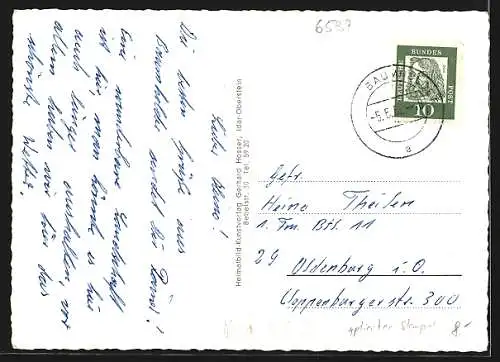 6597
Lieber Heino!
Die besten Grüße aus
Baumholder sendet Dir
Eine wunderbare Landschaft
ist hier, man könnte es hier
auch länger aushalten, vor
allem haben wir hier das
schönste Wetter.
Heimatbild-Kunstverlag Gerhard Hosser, Idar-Oberstein
Bebelstr. 30 Tel. 59 20
DEUTSCHE
BUNDES
POST
10
BAUMHOLDER
a
Gefr.
Heino Theilen
1. Fm. Btl. 11
29 Oldenburg i. O.
Cloppenburgerstr. 300
8.-